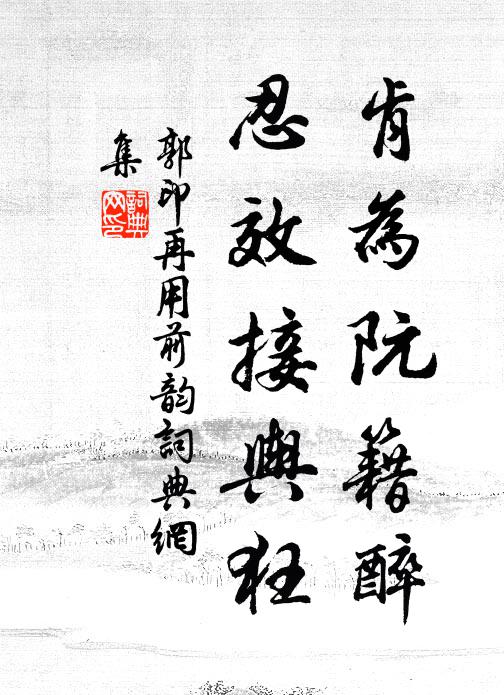 肯為阮籍醉
忍效接輿狂
郭印再用前韵詞典網
集
詞典
网印